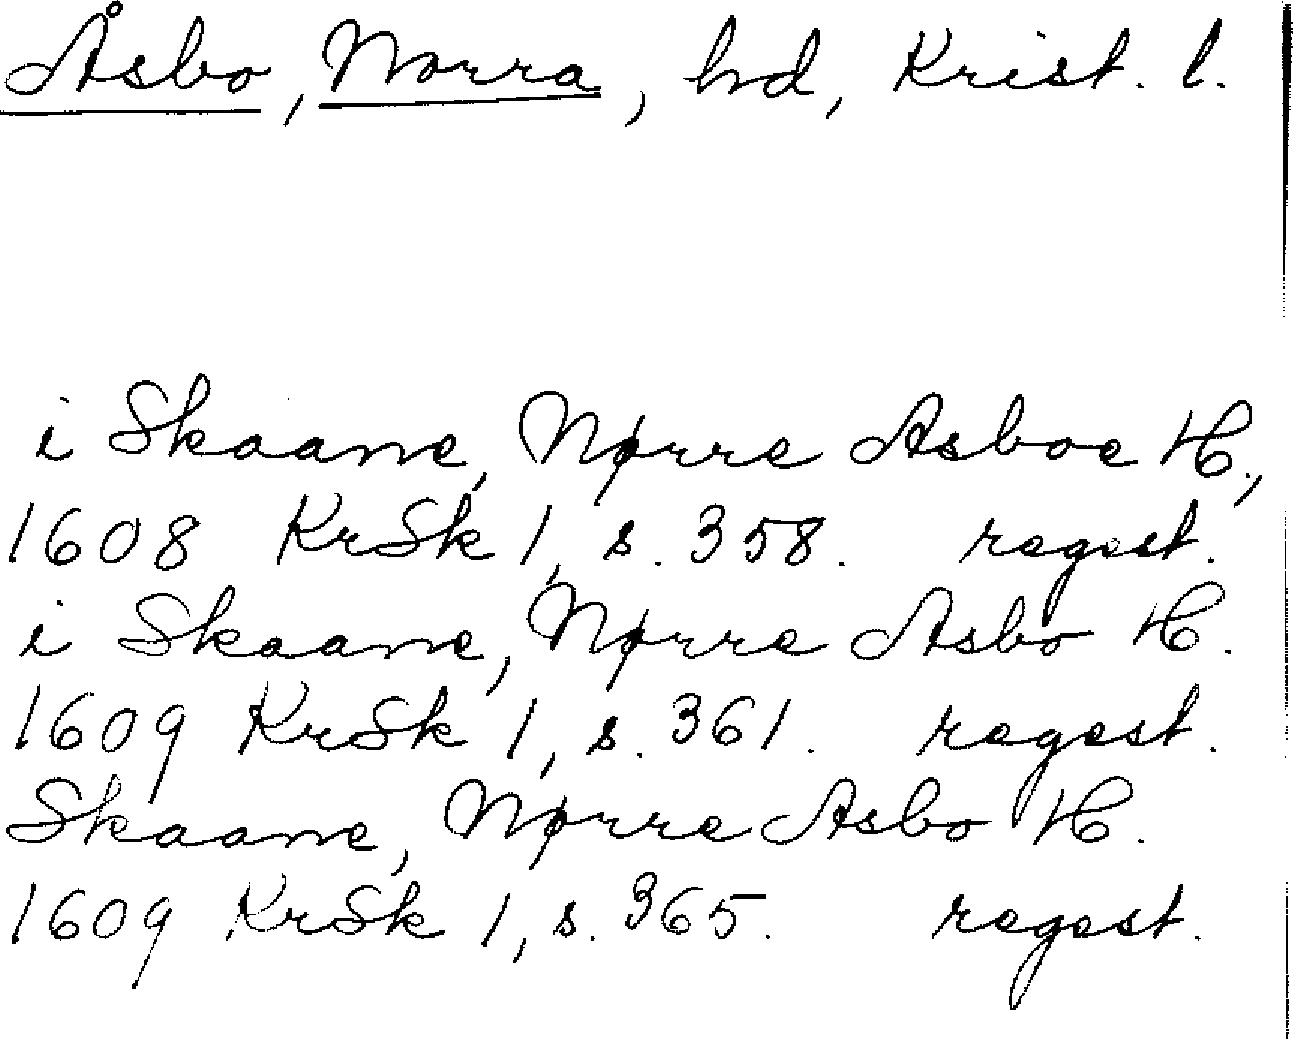 Åsbo, Norra, hd, Krist. l.
i Skaane, Nørre Asboe H.,
1608 KrSk 1, s. 358. regest.
i Skaane, Nørre Asbo H.
1609 KrSk 1, s. 361. regest.
Skaane, Nørre Asbo H.
1609 KrSk 1, s. 365. regest.